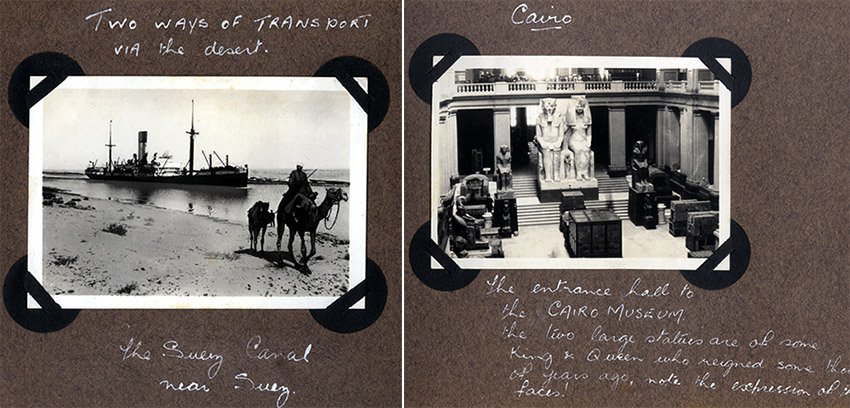 Two WAYS OF TRANSPORT
VIA the desert.
The Suez Canal
near Suez.
Cairo
The entrance hall to
the CAIRO MUSEUM
the two large statues are of some
King & Queen who reigned some
of years ago, note the expression of
faces!